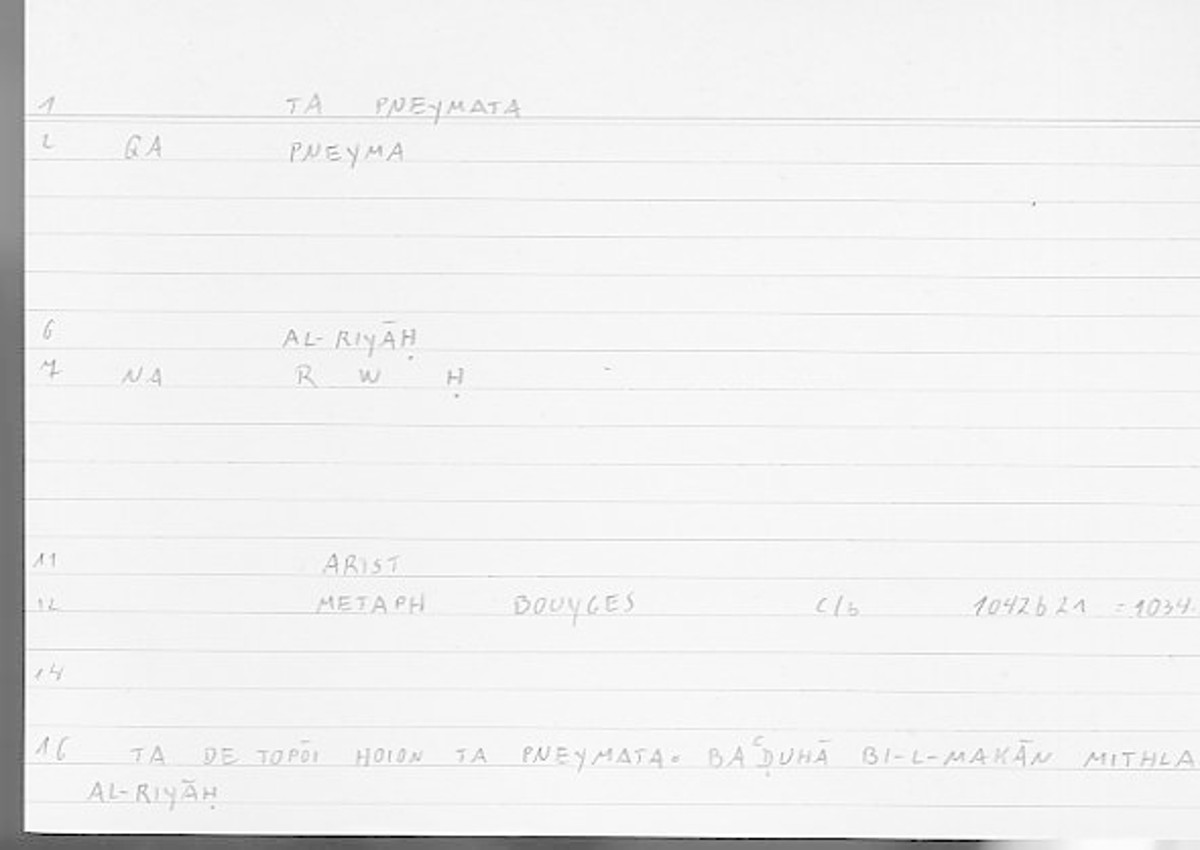 1 TA PNEYMATA
2 QA PNEYMA
6 AL-RIYĀḤ
7 NA R W Ḥ
11 ARIST
12 METAPH BOUYGES C/b 1042b21 = 1034.
14
16 TA DE TOPŌI HOION TA PNEYMATA = BAʿḌUHĀ BI-L-MAKĀN MITHLA
AL-RIYĀḤ